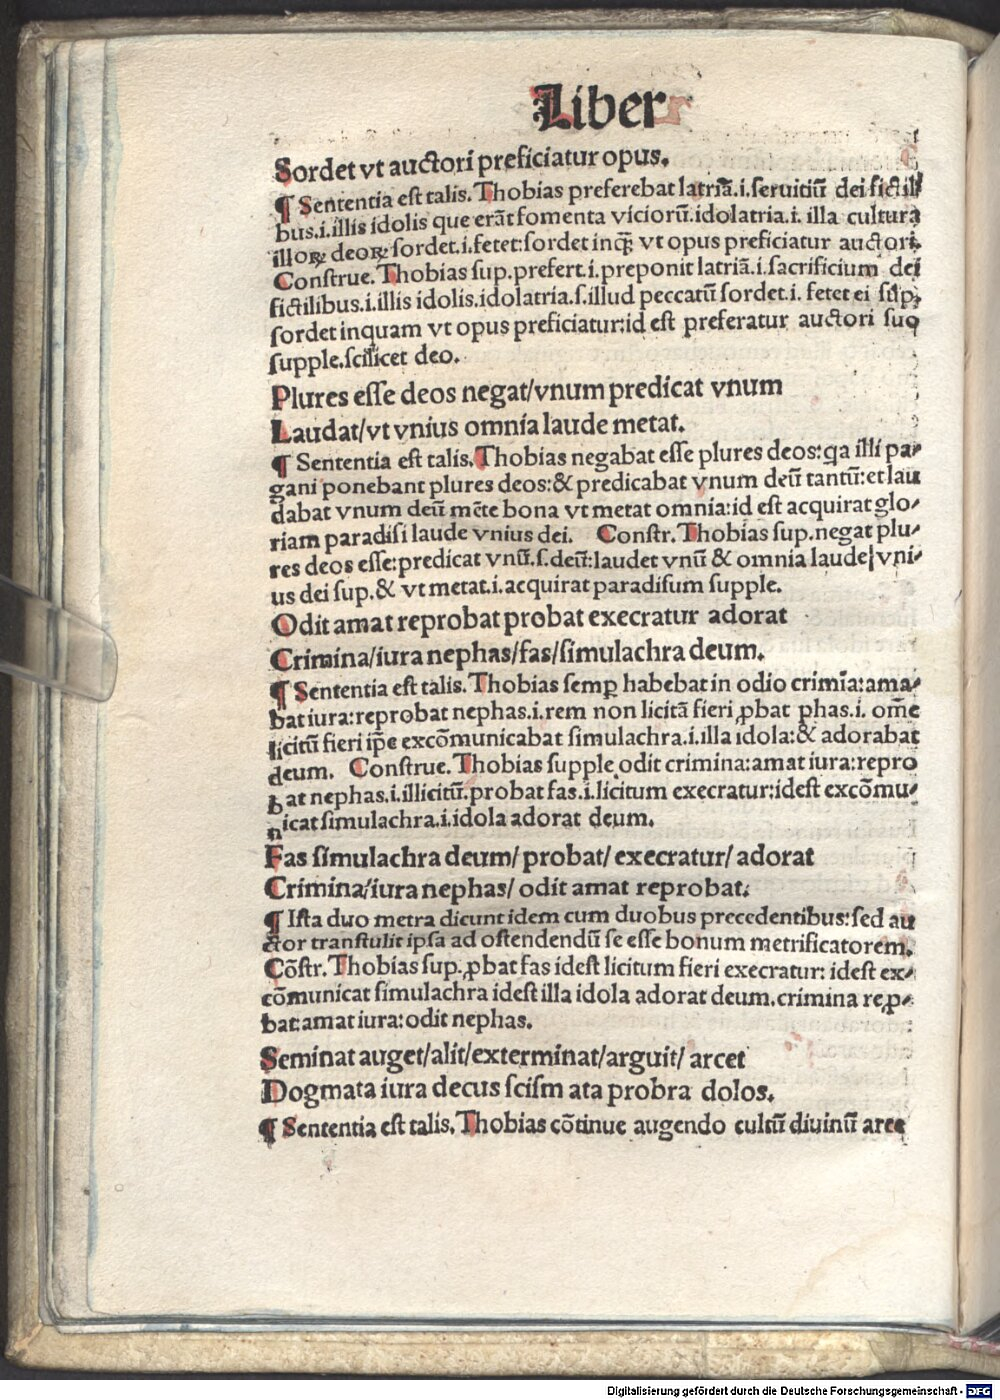 Liber
Sordet vt auctori preficiatur opus.
¶ Sententia est talis. Thobias preferebat latriā.i.seruitiū dei fictili
bus.i.illis idolis que erāt fomenta viciorū.idolatria.i. illa cultura
illoꝝ deoꝝ sordet.i.fetet:sordet inq̄ȝ vt opus preficiatur auctori.
Construe. Thobias sup.prefert.i.preponit latriā.i.sacrificium dei
fictilibus.i.illis idolis.idolatria.s.illud peccatū sordet.i. fetet ei sup.
sordet inquam vt opus preficiatur:id est preferatur auctori suo
supple.scilicet deo.
Plures esse deos negat/vnum predicat vnum
Laudat/vt vnius omnia laude metat.
¶ Sententia est talis. Thobias negabat esse plures deos:qa illi pa⸗
gani ponebant plures deos:& predicabat vnum deū tantū:et lau
dabat vnum deū mēte bona vt metat omnia:id est acquirat glo⸗
riam paradisi laude vnius dei. Constr. Thobias sup.negat plu⸗
res deos esse:predicat vnū.s.deū:laudet vnū & omnia laude vni⸗
us dei sup.& vt metat.i.acquirat paradisum supple.
Odit amat reprobat probat execratur adorat
Crimina/iura nephas/fas/simulachra deum.
¶ Sententia est talis. Thobias semꝑ habebat in odio crimīa:ama⸗
bat iura:reprobat nephas.i.rem non licitā fieri ꝓbat phas.i. om̄e
licitū fieri ip̄e excōmunicabat simulachra.i.illa idola:& adorabat
deum. Construe. Thobias supple odit crimina:amat iura:repro
bat nephas.i.illicitū.probat fas.i.licitum execratur:idest excōmu⸗
nicat simulachra.i.idola adorat deum.
Fas simulachra deum/ probat/ execratur/ adorat
Crimina/iura nephas/ odit amat reprobat.
¶ Ista duo metra dicunt idem cum duobus precedentibus:sed au
ctor transtulit ipsa ad ostendendū se esse bonum metrificatorem.
Cōstr. Thobias sup. ꝓbat fas idest licitum fieri execratur: idest ex⸗
cōmunicat simulachra idest illa idola adorat deum.crimina reꝓ⸗
bat:amat iura:odit nephas.
Seminat auget/alit/exterminat/arguit/ arcet
Dogmata iura decus scism ata probra dolos.
¶ Sententia est talis. Thobias cōtinue augendo cultū diuinū arce
Digitalisierung gefördert durch die Deutsche Forschungsgemeinschaft - DFG